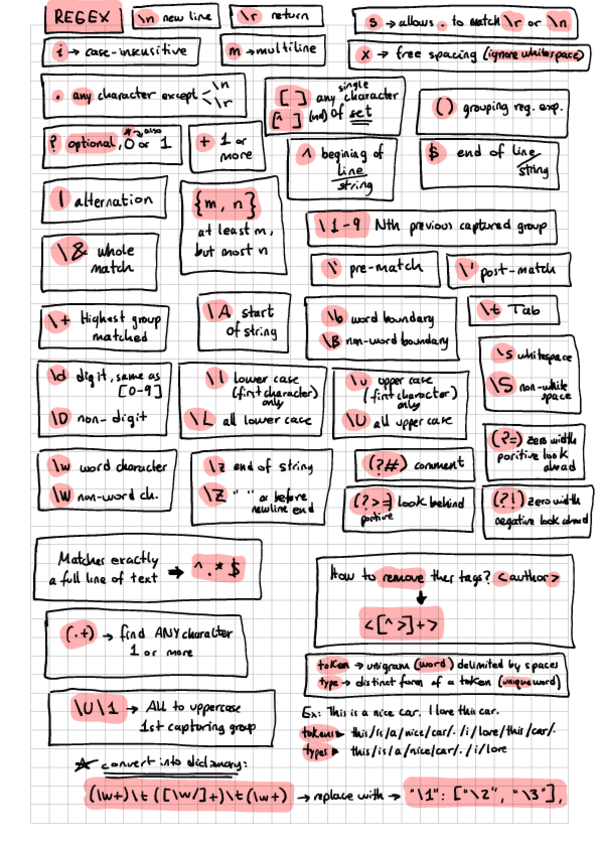 REGEX
\n new line
\r return
s → allows . to match \r or \n
i → case-insensitive
m → multiline
x → free spacing (ignore whitespace)
. any character except \n
\r
[ ] any single character
[^ ] (not) of set
( ) grouping reg. exp.
? optional, 0 or 1
* → also
+ 1 or
more
^ begining of
line/
string
$ end of line/
string
| alternation
{m, n}
at least m,
but most n
\1-9 Nth previous captured group
\& whole
match
\` pre-match
\' post-match
\+ Highest group
matched
\A start
of string
\b word boundary
\B non-word boundary
\t Tab
\d digit, same as
[0-9]
\D non-digit
\l lower case
(first character)
only
\L all lower case
\u upper case
(first character)
only
\U all upper case
\s whitespace
\S non-white
space
\w word character
\W non-word ch.
\z end of string
\Z " " or before
newline end
(?#) comment
(?=) zero width
positive look
ahead
(?>=) look behind
positive
(?!) zero width
negative look ahead
Matches exactly
a full line of text → ^.*$
How to remove the tags? <author>
<[^>]+>
(.+) → find ANY character
1 or more
token → unigram (word) delimited by spaces
type → distinct form of a token (unique word)
\U\1 → All to uppercase
1st capturing group
Ex: This is a nice car. I love this car.
tokens ► this/is/a/nice/car/. /i/love/this/car/.
types ► this/is/a/nice/car/. /i/love
★ convert into dictionary:
(\w+)\t([\w/]+)\t(\w+) → replace with → "\1": ["\2", "\3"],